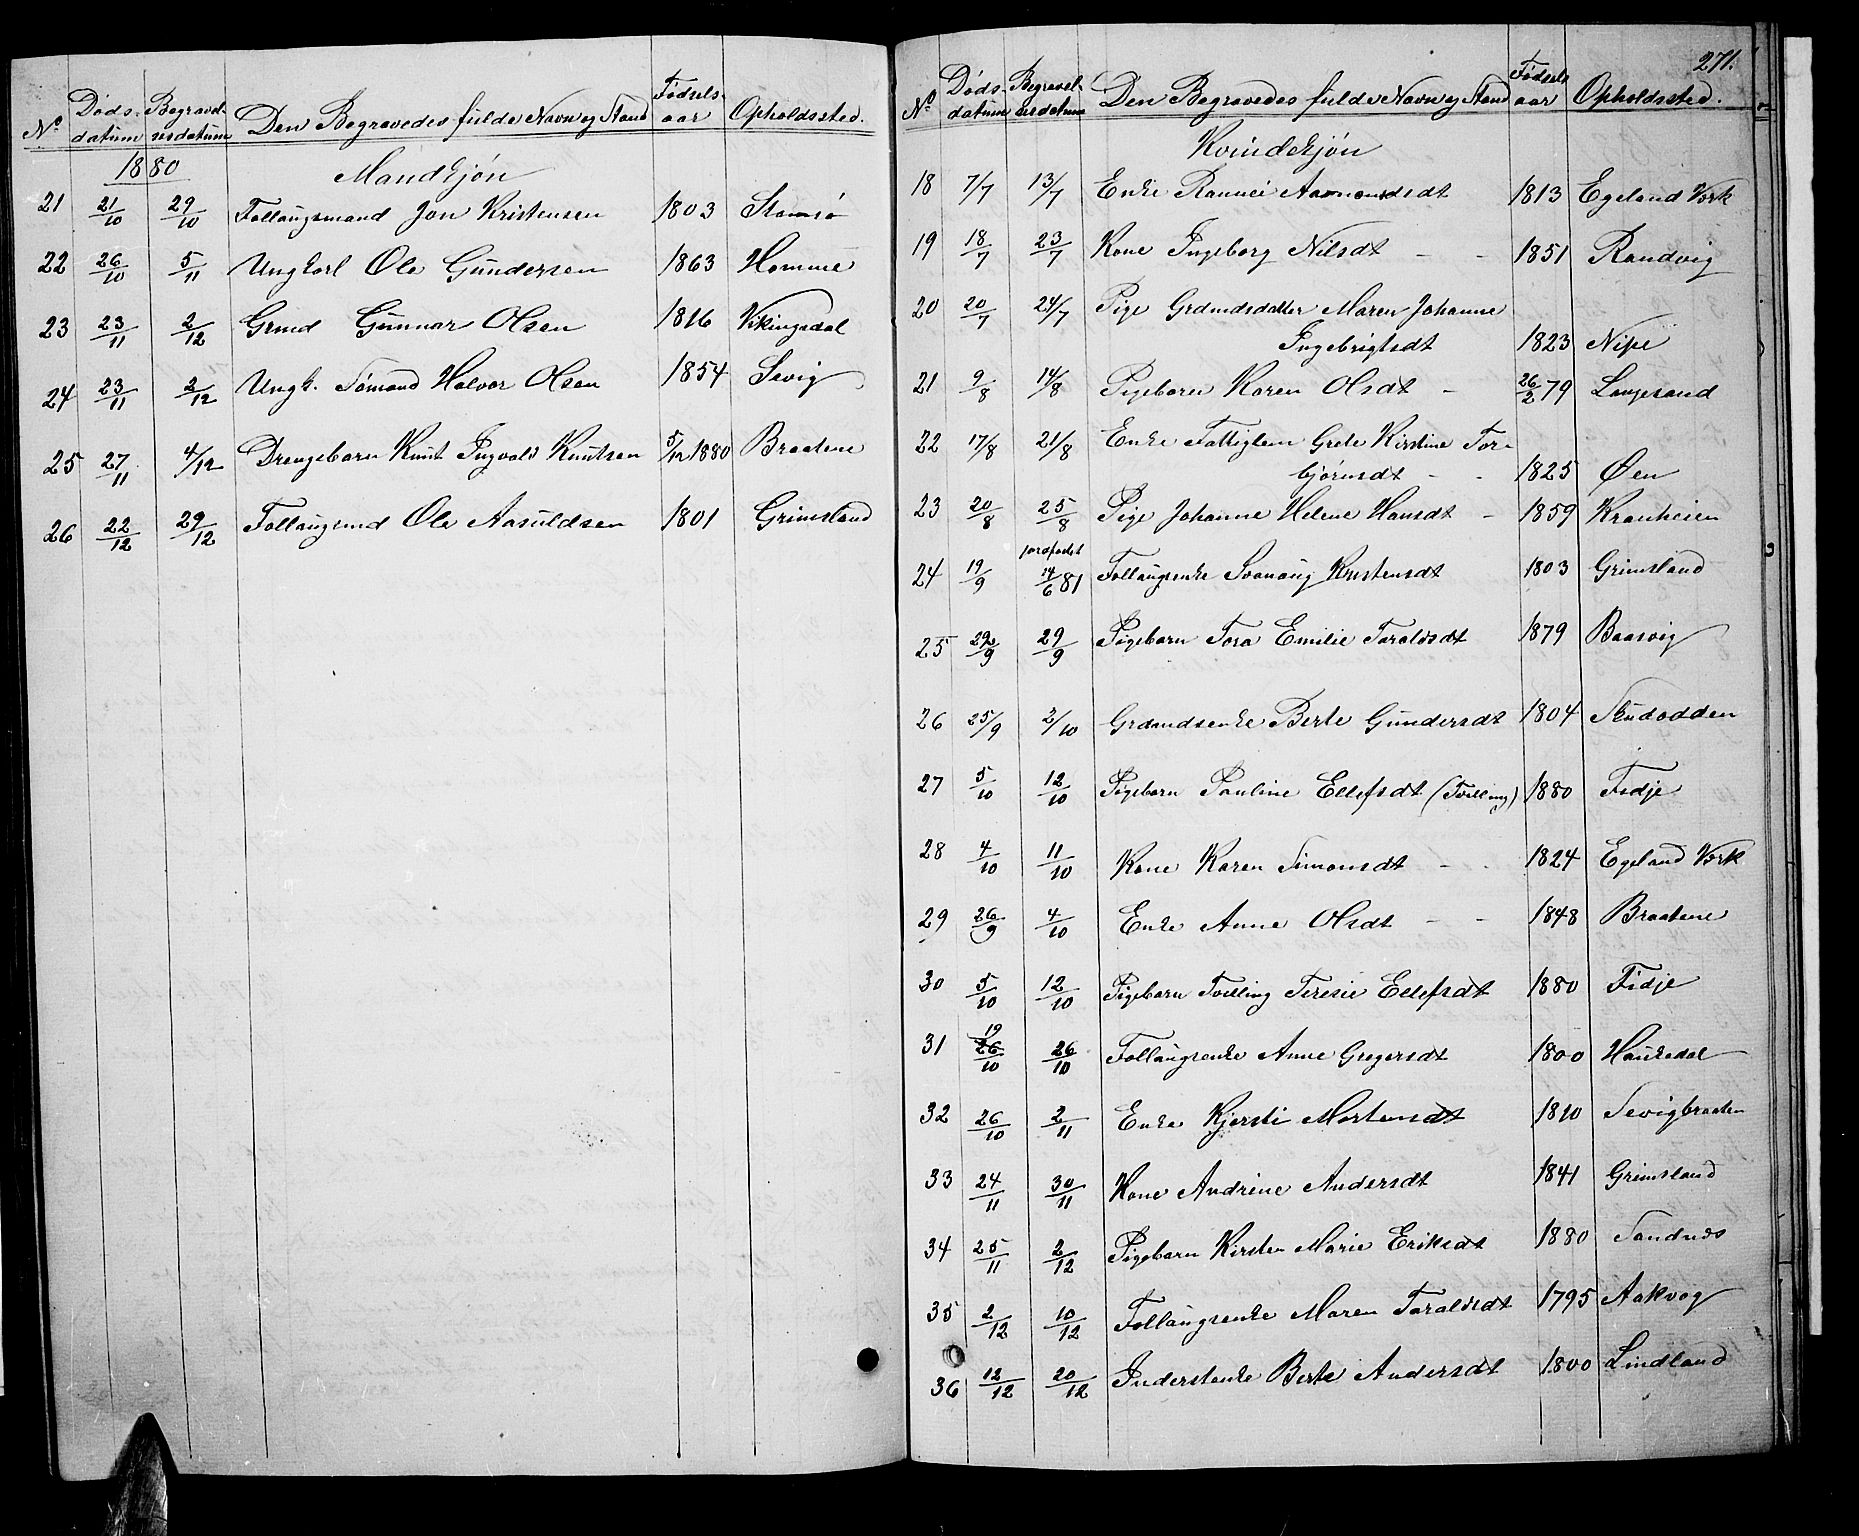 No Døds- datum Begravel- sesdatum Den Begravedes fulde Navn og Stand Fødsels- aar Opholdssted.
1880 Mandkjøn
21 21/10 29/10 Follaugsmand Jon Kristensen 1803 Stomsø
22 26/10 5/11 Ungkarl Ole Gundersen 1863 Homme
23 23/11 2/12 Grmd Gunnar Olsen 1816 Vikingsdal
24 23/11 2/12 Ungk. Sømand Halvor Olsen 1854 Sevig
25 27/11 4/12 Drengebarn Knut Ingvald Knutsen 5/12 1880 Braatene
26 22/12 29/12 Follaugsmd Ole Aasuldsen 1801 Grimsland
271.
No Døds- datum Begravel- sesdatum Den Begravedes fulde Navn og Stand Fødsels aar Opholdssted.
Kvindekjøn
18 7/7 13/7 Enke Rannei Aamundsdt 1813 Egeland Verk
19 18/7 23/7 Kone Ingeborg Nilsdt - - 1851 Randvig
20 20/7 24/7 Pige Grdmdsdatter Maren Johanne
Ingebrigtsdt 1823 Nipe
21 9/8 14/8 Pigebarn Karen Olsdt - 26/2 79 Langesand
22 17/8 21/8 Enke Fattiglem Grete Kirstine Tor-
bjørnsdt - - 1825 Øen
23 20/8 25/8 Pige Johanne Helene Hansdt - 1859 Kranheien
jordfæstet
24 19/9 14/6 81 Follaugsenke Svanaug Kristensdt 1803 Grimsland
25 22/9 29/9 Pigebarn Tora Emilie Taraldsdt 1879 Baasvig
26 25/9 2/10 Grdmandsenke Berte Gundersdt 1804 Studodden
27 5/10 12/10 Pigebarn Pauline Ellefsdt (Tvilling) 1880 Fidje
28 4/10 11/10 Kone Karen Simonsdt - - 1824 Egeland Verk
29 26/9 4/10 Enke Anne Olsdt - - 1848 Braatene
30 5/10 12/10 Pigebarn Tvilling Teresie Ellefsdt 1880 Fidje
19
31 26/10 26/10 Follaugsenke Anne Gregersdt 1800 Haukedal
32 26/10 2/11 Enke Kjersti Mortensdt 1810 Sevigbraaten
33 24/11 30/11 Kone Andrine Andersdt 1841 Grimsland
34 25/11 2/12 Pigebarn Kirsten Marie Eriksdt 1880 Sandnes
35 2/12 10/12 Follaugsenke Maren Taraldsdt 1795 Aakvag
36 12/12 20/12 Inderstenke Berte Andersdt 1800 Lindland